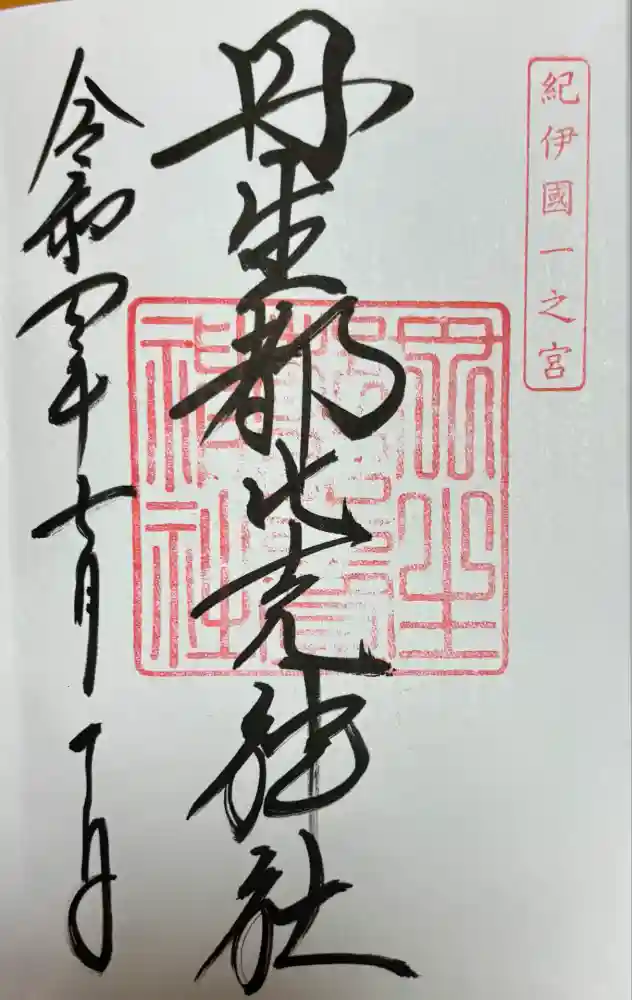 紀伊國一之宮
丹生都比売神社
丹生都比賣神社
令和四年七月一日